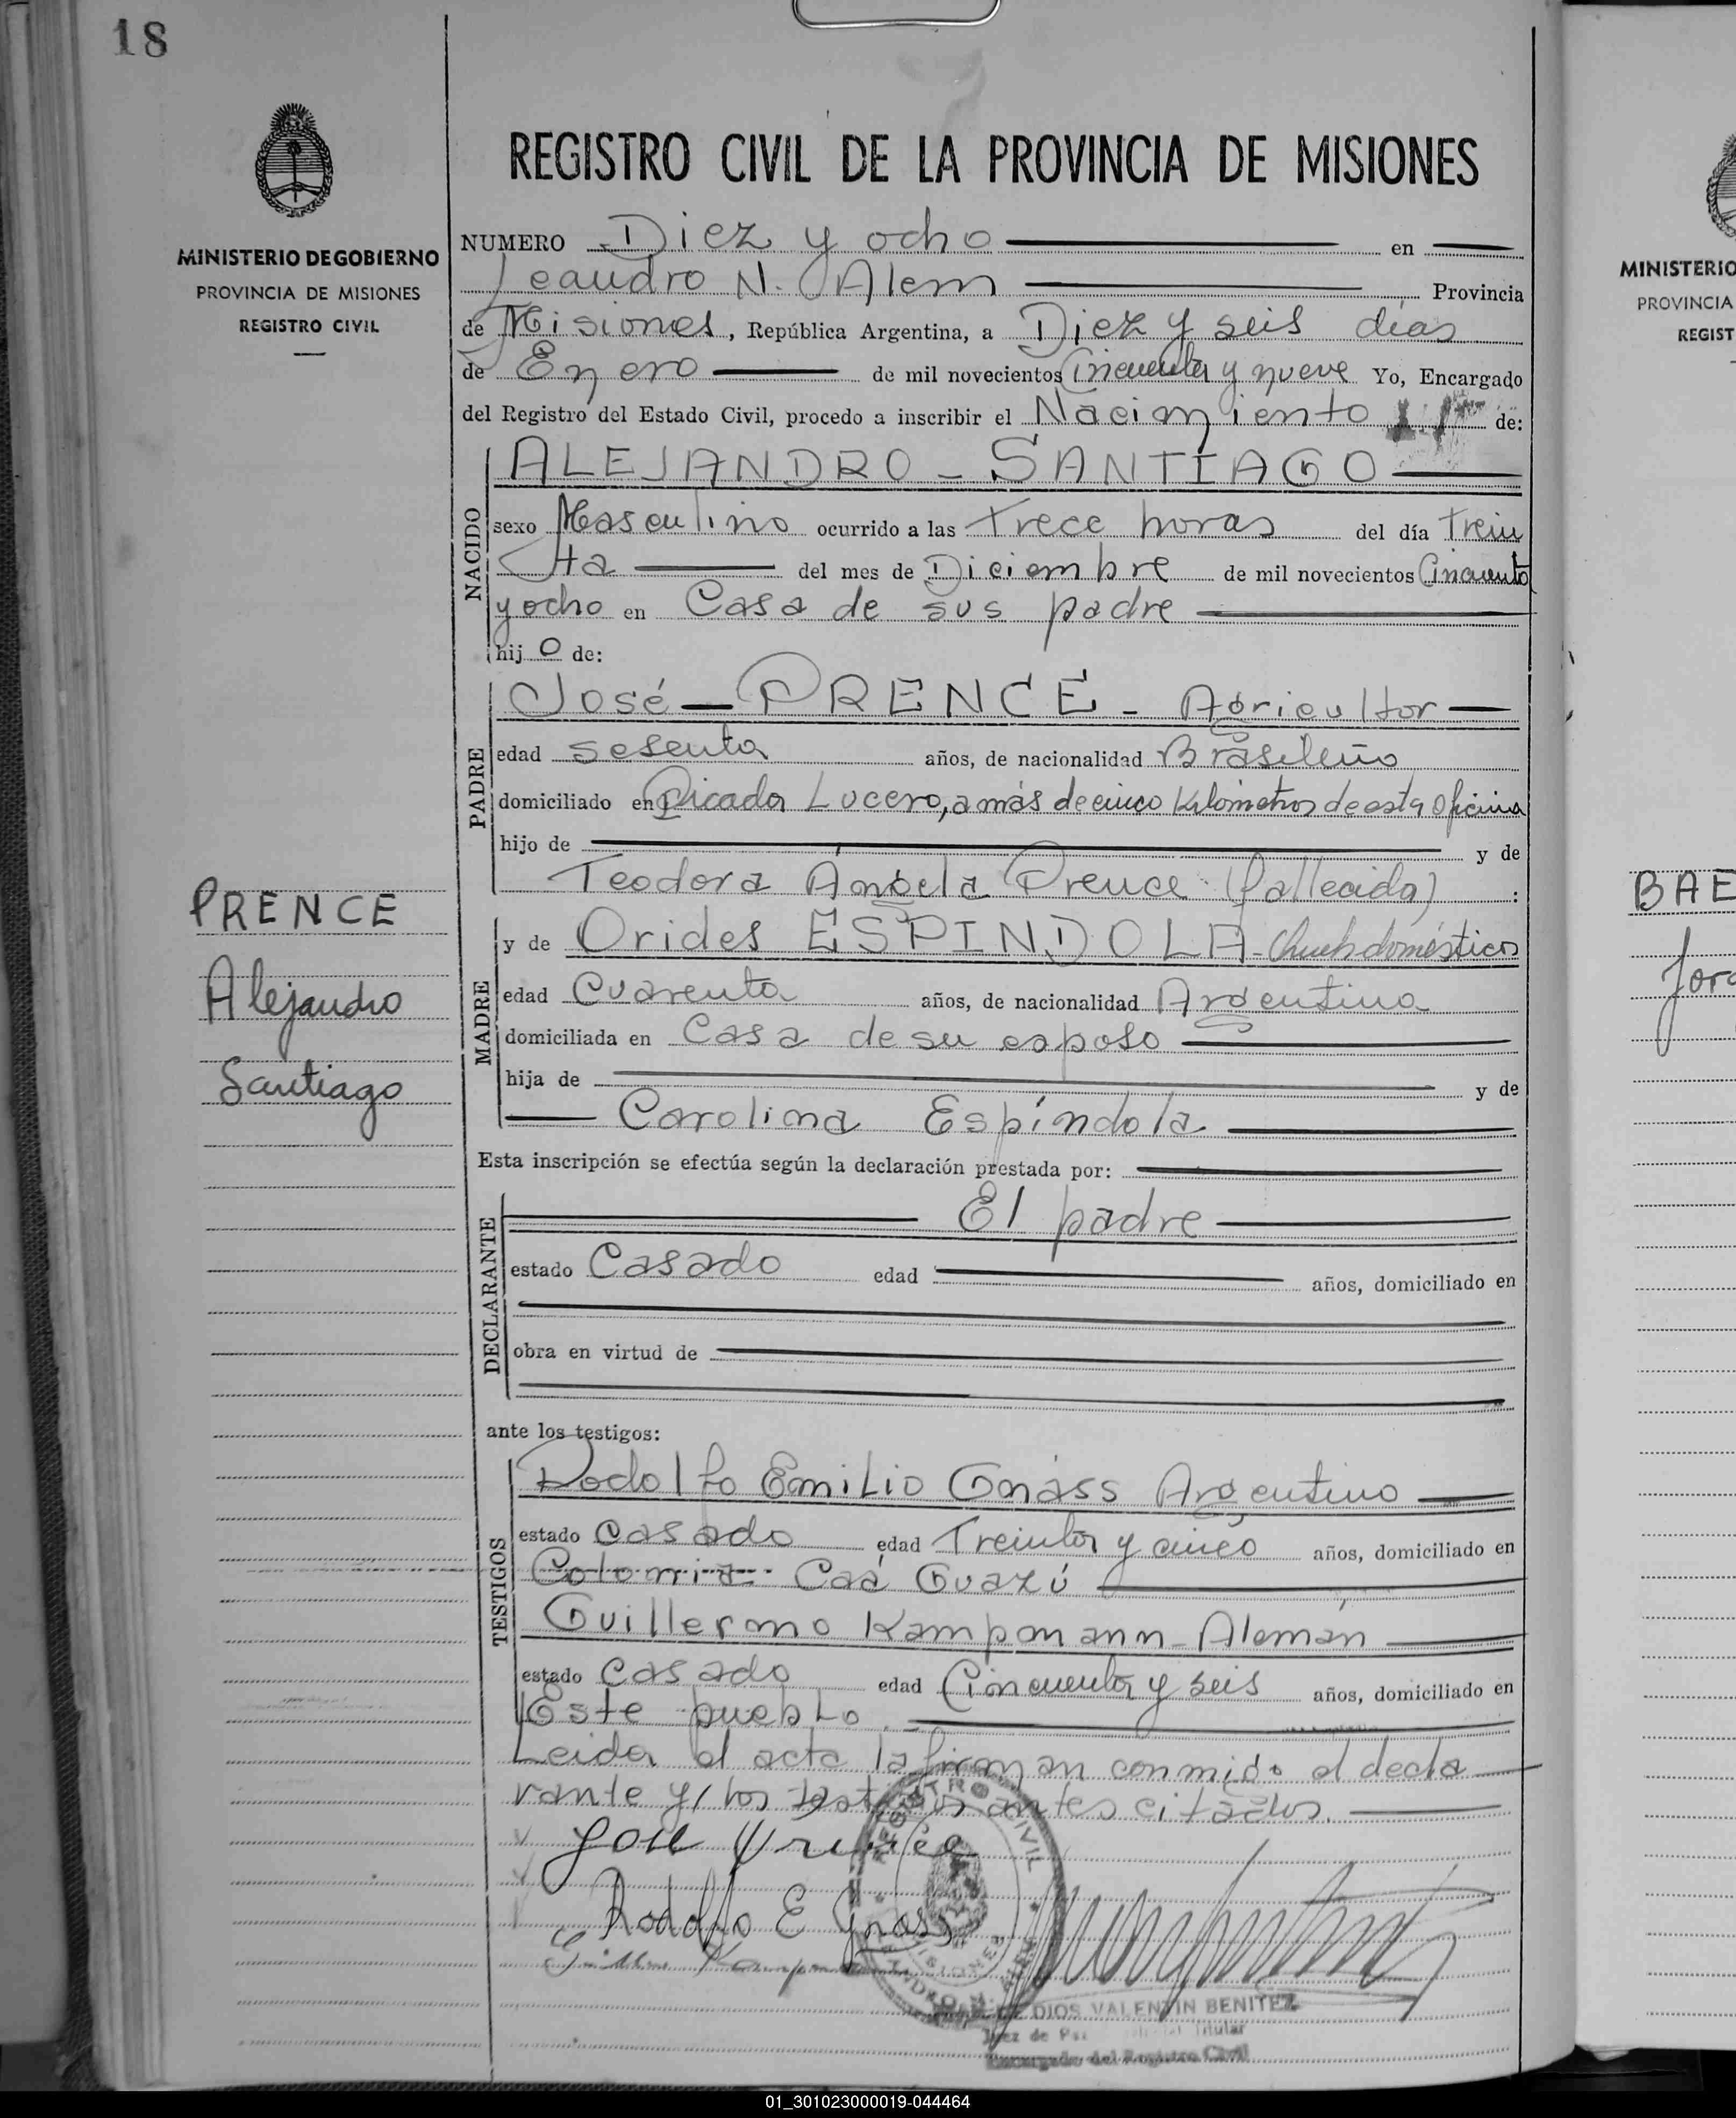 18
MINISTERIO DE GOBIERNO
PROVINCIA DE MISIONES
REGISTRO CIVIL
REGISTRO CIVIL DE LA PROVINCIA DE MISIONES
NUMERO Diez y ocho en
Leandro N. Alem Provincia
de Misiones, República Argentina, a Diez y seis días
de Enero de mil novecientos Cincuenta y nueve Yo, Encargado
del Registro del Estado Civil, procedo a inscribir el Nacimiento de:
NACIDO
ALEJANDRO - SANTIAGO
sexo Masculino ocurrido a las Trece horas del día Trein
ta del mes de Diciembre de mil novecientos Cincuenta
y ocho en Casa de sus padre
hij o de:
PADRE
José - PRENCE - Agricultor
edad sesenta años, de nacionalidad Brasileño
domiciliado en Picada Lucero, a más de cinco Kilómetros de esta oficina
hijo de y de
Teodora Ángela Prence (fallecida) :
PRENCE
Alejandro
Santiago
MADRE
y de Orides ESPINDOLA - domésticos
edad Cuarenta años, de nacionalidad Argentina
domiciliada en Casa de su esposo
hija de y de
Carolina Espíndola
Esta inscripción se efectúa según la declaración prestada por:
DECLARANTE
El padre
estado Casado edad años, domiciliado en
obra en virtud de
ante los testigos:
TESTIGOS
Rodolfo Emilio Gnass Argentino
estado casado edad Treinta y cinco años, domiciliado en
Colonia Caá Guazú
Guillermo Kampmann - Alemán
estado casado edad Cincuenta y seis años, domiciliado en
Este pueblo.
Leida el acta la firman conmigo el decla
rante y los testigos antes citados.
José Prence
Rodolfo E Gnass
REGISTRO CIVIL
MISIONES
LEANDRO N. ALEM
DE DIOS VALENTIN BENITEZ
Juez de Paz Titular
Encargado del Registro Civil
MINISTERIO
PROVINCIA
REGIST
BAE
Jorg
01_301023000019-044464